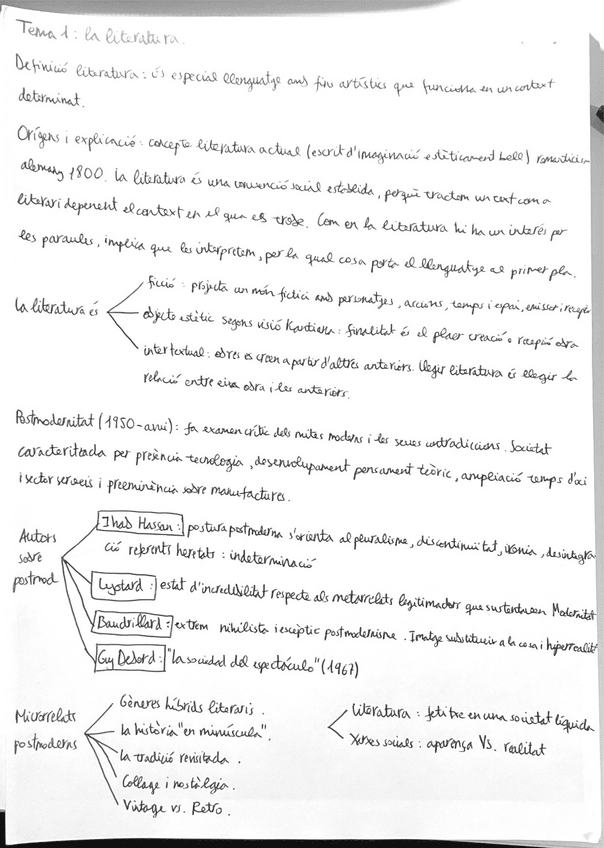 Tema 1: la literatura.
Definició literatura: ús especial llenguatge amb fins artístics que funciona en un context
determinat.
Orígens i explicació: concepte literatura actual (escrit d'imaginació estèticament bell) romanticism
alemany 1800. La literatura és una convenció social establida, perquè tractem un text com a
literari depenent el context en el que es trobe. Com en la literatura hi ha un interés per
les paraules, implica que les interpretem, per la qual cosa porta el llenguatge al primer pla.
ficció: projecta un món fictici amb personatges, accions, temps i espai, emissor i receptor
La literatura és
objecte estètic segons visió Kantiana: finalitat és el plaer creació o recepció obra
intertextual: obres es creen a partir d'altres anteriors. Llegir literatura és llegir la
relació entre eixa obra i les anteriors.
Postmodernitat (1950-avui): fa examen crític dels mites moderns i les seues contradiccions. Societat
caracteritzada per presència tecnologia, desenvolupament pensament teòric, ampliació temps d'oci
i sector serveis i preeminència sobre manufactures.
Autors
sobre
postmod
Ihab Hassan: postura postmoderna s'orienta al pluralisme, discontinuïtat, ironia, desintegra-
ció referents heretats: indeterminació
Lyotard: estat d'incredibilitat respecte als metarrelats legitimadors que sustentaven Modernitat
Baudrillard: extrem nihilista i escèptic postmodernisme. Imatge substitueix a la cosa i hiperrealitat
Guy Debord: "la sociedad del espectáculo" (1967)
Microrrelats
postmoderns
Gèneres híbrids literaris.
La història "en minúscula".
La tradició revisitada.
Collage i nostàlgia.
Vintage vs. Retro.
Literatura: fetitxe en una societat líquida
Xarxes socials: aparença Vs. realitat